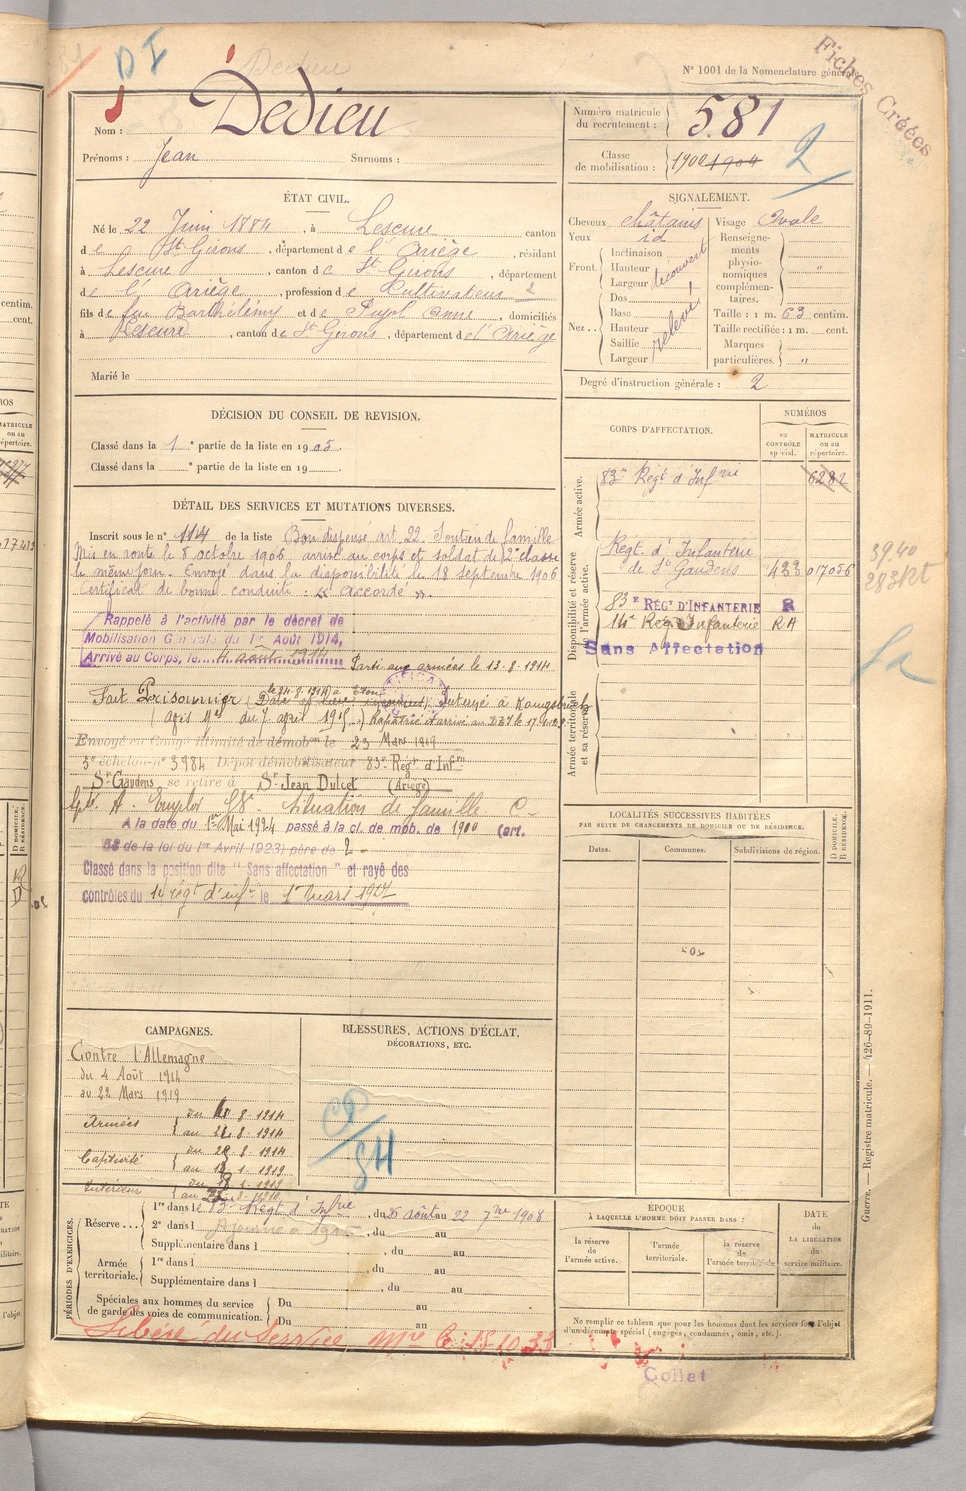 D I
Dedieu
Fiches Créées
N° 1001 de la Nomenclature générale
Nom : Dedieu
Prénoms : Jean Surnoms :
Numéro matricule du recrutement : 581
Classe de mobilisation : 1900 1904
2
ÉTAT CIVIL.
Né le 22 Juin 1884, à Lescure canton
de St Girons, département de l'Ariège, résidant
à Lescure, canton de St Girons, département
de l'Ariège, profession de Cultivateur
fils de feu Barthélémy et de Pujol Anne, domiciliés
à Lescure, canton de St Girons, département de l'Ariège
Marié le
SIGNALEMENT.
Cheveux châtains
Yeux id
Front. Inclinaison
Hauteur
Largeur
découvert
Nez . . Dos
Base
Hauteur
Saillie
Largeur
relevé
Visage Ovale
Renseignements physionomiques complémentaires. "
Taille : 1 m. 63 centim.
Taille rectifiée : 1 m. cent.
Marques particulières. "
Degré d'instruction générale : 2
DÉCISION DU CONSEIL DE REVISION.
Classé dans la 1 e partie de la liste en 1905.
Classé dans la e partie de la liste en 19 .
DÉTAIL DES SERVICES ET MUTATIONS DIVERSES.
Inscrit sous le n° 114 de la liste Bon dispensé art 22. Soutien de famille
Mis en route le 8 octobre 1905 arrivé au corps et soldat de 2e classe
le même jour. Envoyé dans la disponibilité le 18 septembre 1906
Certificat de bonne conduite : « accordé ».
Rappelé à l'activité par le décret de
Mobilisation Générale du 1er Août 1914,
Arrivé au Corps, le 4 août 1914 Parti aux armées le 13-8-1914
Fait Prisonnier (le 24-8-1914) à
Interné à
(Avis Mel du 7 april 1915) Rapatrié et arrivé au
Envoyé en Congé illimité de démobon le 23 Mars 1919
5e échelon n° 3984 Dépôt démobilisateur 83e Régt d'Infie
St Gaudens se retire à St Jean Dulcet (Ariège)
A. Emploi Situation de famille C-
A la date du 1er Mai 1924 passé à la cl. de mob. de 1900 (art.
58 de la loi du 1er Avril 1923) père de 2
Classé dans la position dite "Sans affectation" et rayé des
contrôles du 14 régt d'infie le 1er Mars 1927
CORPS D'AFFECTATION.
NUMÉROS
au contrôle spécial.
MATRICULE ou au répertoire.
Armée active.
83e Régt d'Infrie 6282
Disponibilité et réserve de l'armée active.
Régt d'Infanterie
de St Gaudens 433 017056
83e RÉGT D'INFANTERIE R
14e Régt Infanterie RA
Sans Affectation
Armée territoriale et sa réserve.
LOCALITÉS SUCCESSIVES HABITÉES
PAR SUITE DE CHANGEMENTS DE DOMICILE OU DE RÉSIDENCE.
Dates. Communes. Subdivisions de région.
D DOMICILE. R RÉSIDENCE.
CAMPAGNES.
Contre l'Allemagne
du 4 Août 1914
au 22 Mars 1919
Armées
Captivité
Intérieur
BLESSURES, ACTIONS D'ÉCLAT,
DÉCORATIONS, ETC.
PÉRIODES D'EXERCICES.
Réserve . . . 1re dans le 83e Régt d'Infrie, du 26 août au 22 7bre 1908
2e dans l , du au
Supplémentaire dans l , du au
Armée territoriale. 1re dans l , du au
Supplémentaire dans l , du au
Spéciales aux hommes du service de garde des voies de communication. Du au
Du au
Libéré du Service Mre le 15-10-33
ÉPOQUE
À LAQUELLE L'HOMME DOIT PASSER DANS :
la réserve de l'armée active.
l'armée territoriale.
la réserve de l'armée territoriale.
DATE de LA LIBÉRATION du service militaire.
Ne remplir ce tableau que pour les hommes dont les services font l'objet
d'un décompte spécial (engagés, condamnés, omis, etc.).
Collat
Guerre. — Registre matricule. — 426-89-1911.